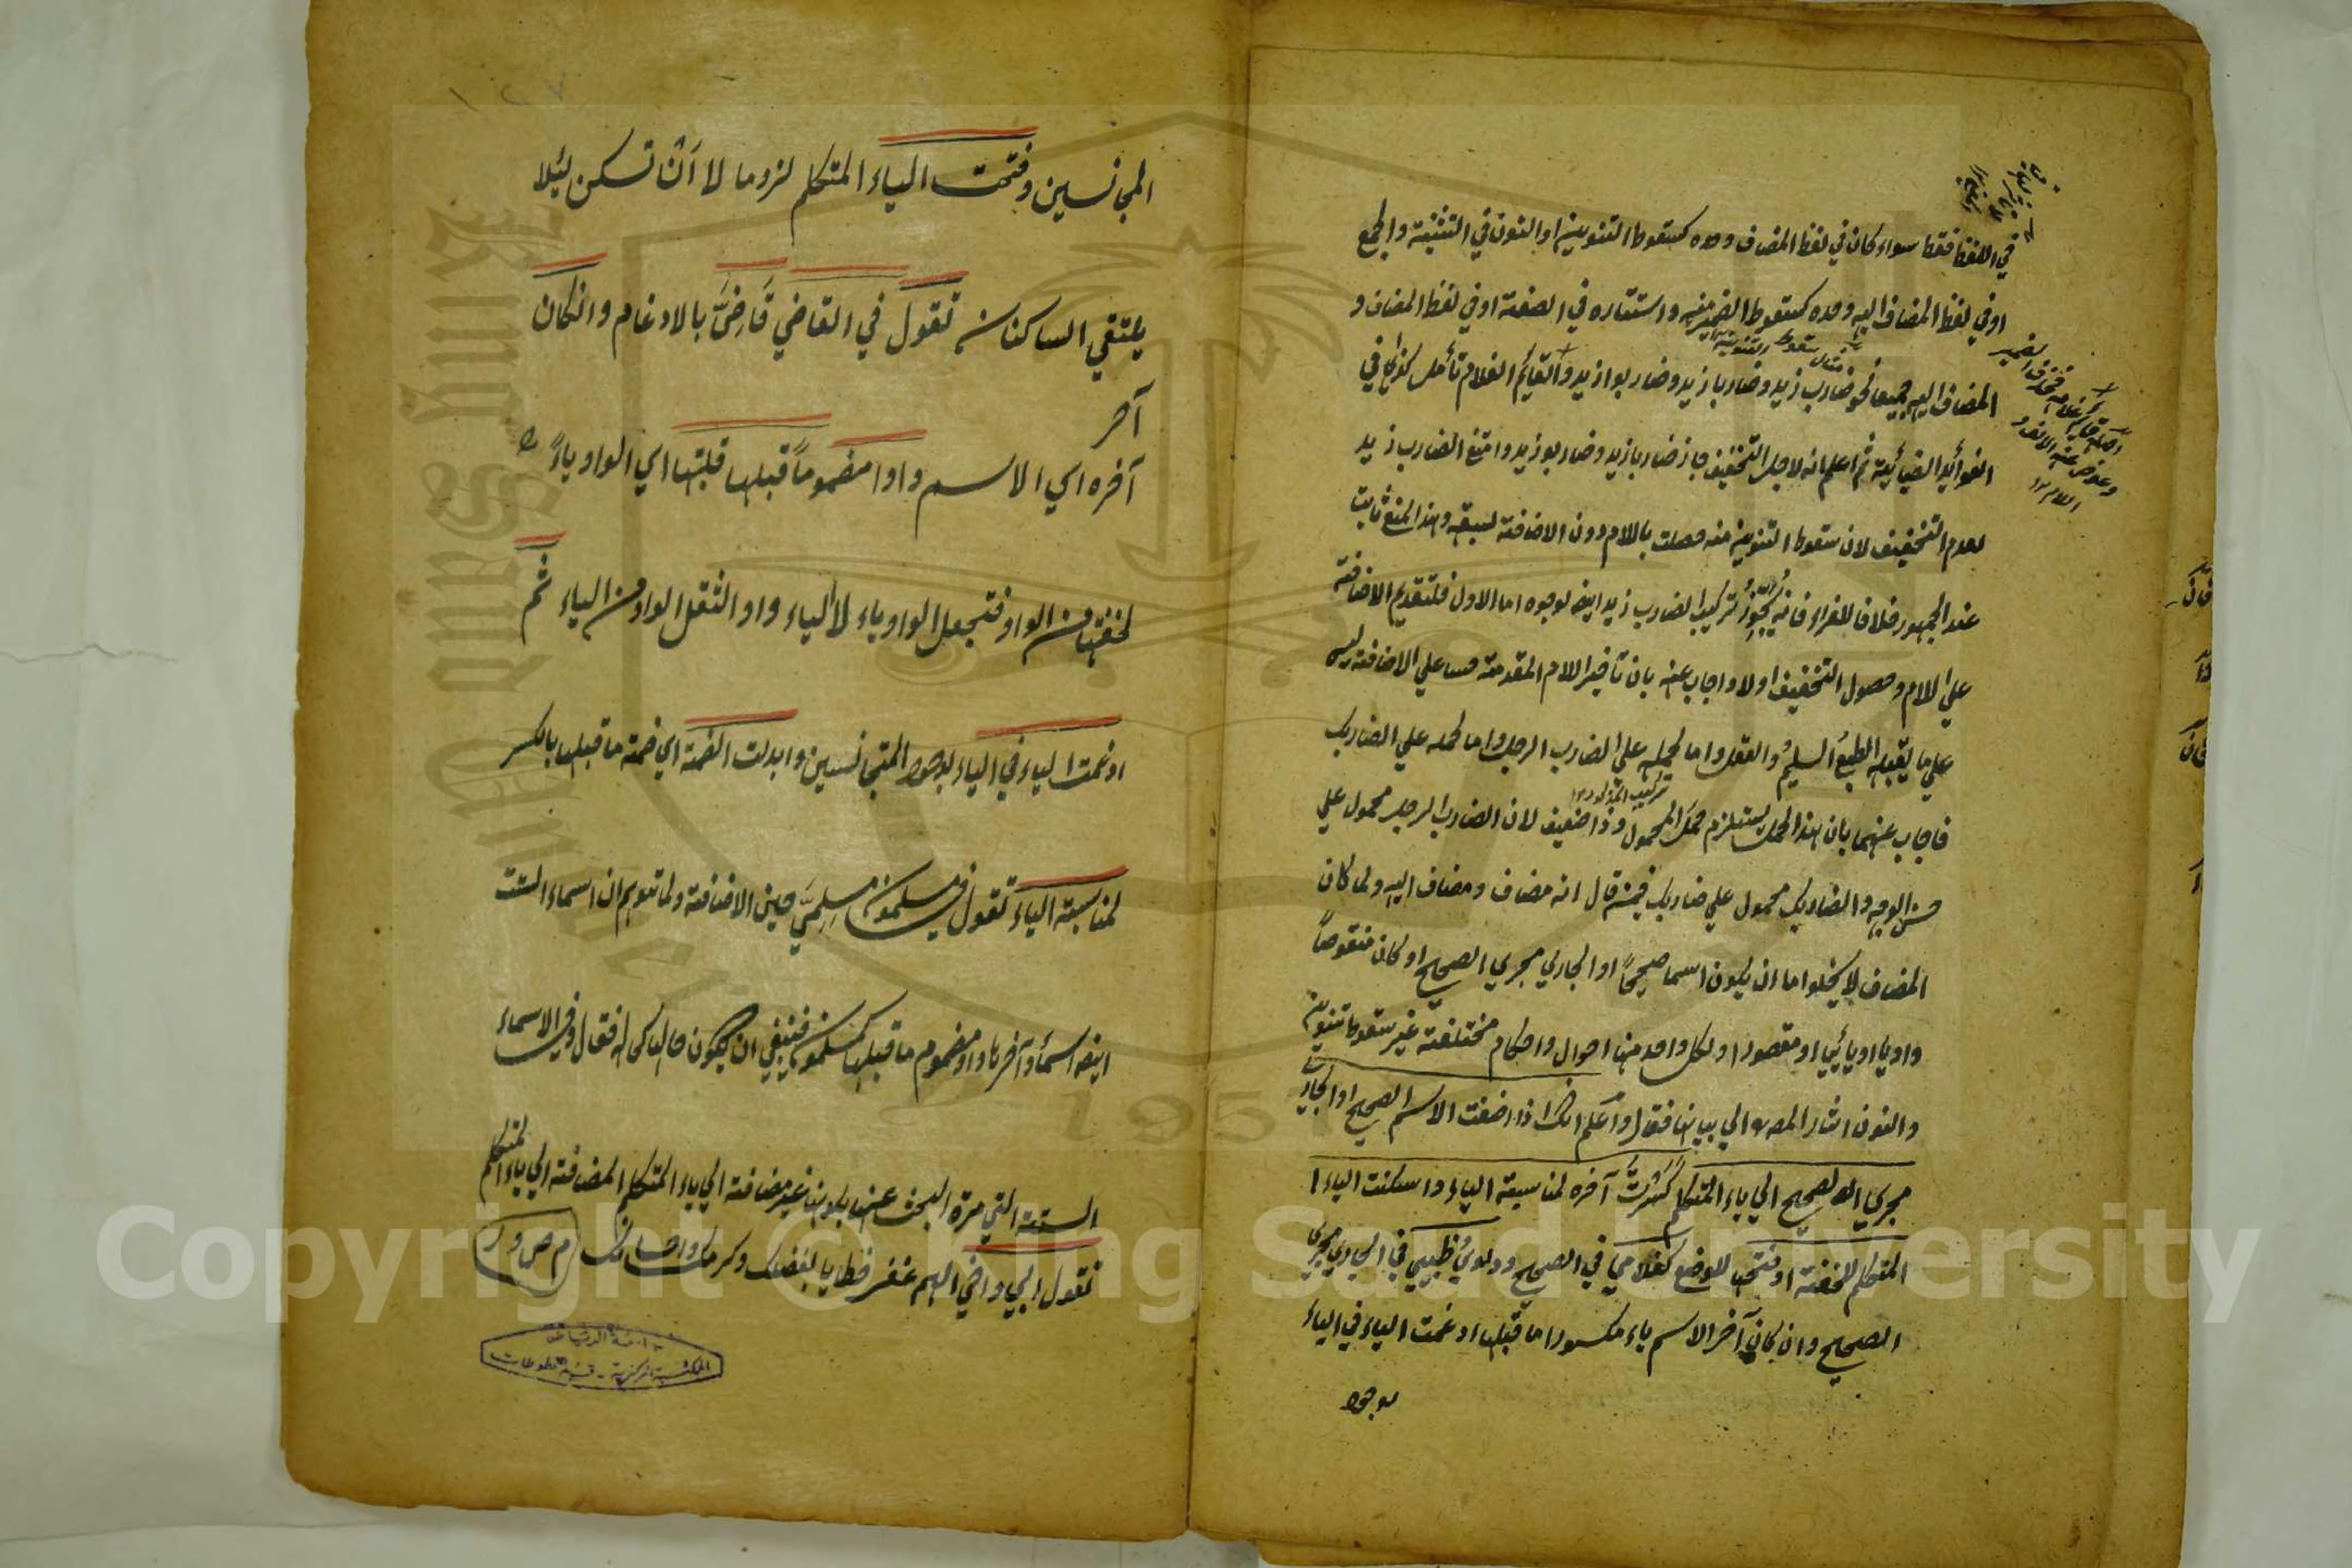 في اللفظ فقط سواء كان في لفظ المضاف وحده كسقوط التنوين او النون في التثنية والجمع
او في لفظ المضاف اليه وحده كسقوط الضمير منه واستتاره في الصفة او في لفظ المضاف و
مثال سقوط التنوين
المضاف اليه جميعا نحو ضارب زيد وضاربا زيد وضاربوا زيد والقائم الغلام تأمل كذا في
الفوائد الضيائية ثم اعلم انه لاجل التخفيف جاز ضاربا زيد وضاربو زيد وامتنع الضارب زيد
لعدم التخفيف لان سقوط التنوين منه حصلت باللام دون الاضافة لسبقه وهذا المنع ثابت
عند الجمهور خلافا للفراء فانه يُجَوِّزُ تركيب الضارب زيد ايضا لوجوه اما الاول فلتقديم الاضافة
علي اللام وحصول التخفيف اولا واجاب عنه بان تأخير اللام المقدمة حسا علي الاضافة ليس
علي ما يقبله الطبع السليم والعقل واما لحمله علي الضارب الرجل واما لحمله علي الضاربك
فاجاب عنهما بان هذا الحمل يستلزم حمل المحمول وذا ضعيف لان الضارب الرجل محمول علي
حسن الوجه والضاربك محمول علي ضاربك فيمن قال انه مضاف ومضاف اليه ولما كان
المضاف لا يخلوا اما ان يكون اسما صحيحاً او الجاري مجري الصحيح او كان منقوصاً
واويا او يائيا او مقصورا ولكل واحد منها احوال واحكام مختلفة غير سقوط تنوين
والنون اشار المصه الي بيانها فقال واعلم انك اذا اضفت الاسم الصحيح او الجاري
مجري الصحيح الي ياء المتكلم كَسَرْتَ آخره لمناسبة الياء واسكنت الياء
المتكلم للخفة او فتحتها للوضع كغلامي في الصحيح ودلوي وظبيي في الجاري مجري
الصحيح وان كان آخر الاسم ياء مكسورا ما قبلها ادغمت الياء في الياء
لوجود
اصله قائم غلامه فحذف الضمير
وعوض عنه الالف و
اللام ١٢
١٢٧
المجانسين وفتحت الياء المتكلم لزوما لا اَنْ تسكن لئلا
يلتقي الساكنان تقول في القاضي قَاضِيَّ بالادغام وان كان
آخر
آخره اي الاسم واوا مضموماً قبلها قلبتها اي الواو ياءً
لخفتها من الواو فتجعل الواو ياء لا الياء واوا لثقل الواو من الياء ثم
ادغمت الياء في الياء لوجود المتجانسين وابدلت الضمة اي ضمة ما قبلها بالكسر
لمناسبة الياء تقول في مسلمون مسلمِيَّ حين الاضافة ولما توهم ان اسماء الستة
ايضا اسماء آخرها واو مضموم ما قبلها كمسلمون فينبغي ان يكون حالها كحاله فقال وفي الاسماء
الستة التي مرة البحث عنها بكونها غير مضافة الي ياء المتكلم المضافة الي ياء المتكلم
تقول ابي واخي اللهم غفر خطايا بفضلك وكرمك واحسانك ام ص و ر
جامعة الرياض
المكتبة المركزية - قسم المخطوطات
Copyright © King Saud University
King Saud University
1957